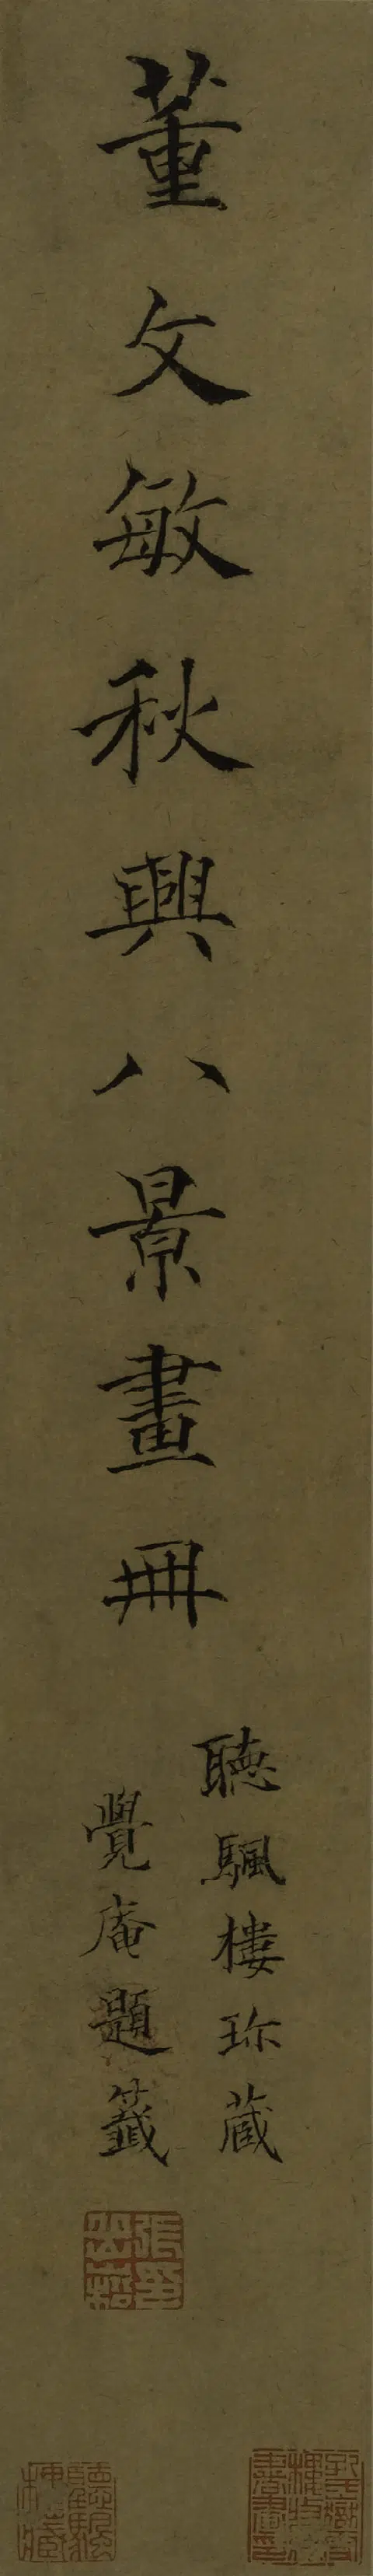 董文敏秋興八景畫冊
聽颿樓珎藏
覺庵題籤